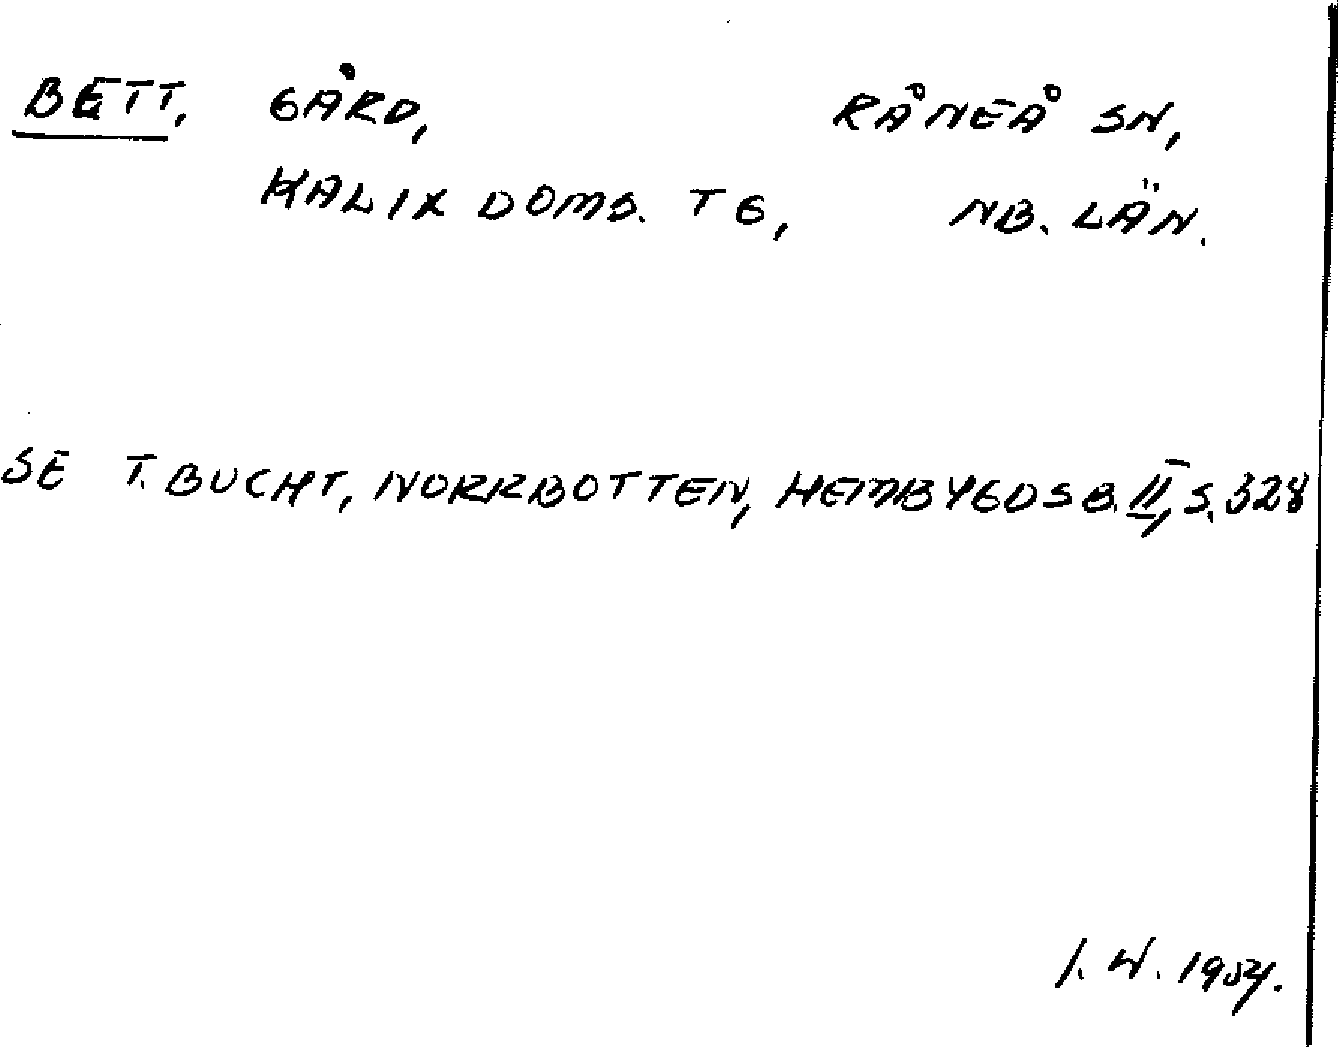 BETT, GÅRD, RÅNEÅ SN,
KALIX DOMS. TG, NB. LÄN.
SE T. BUCHT, NORRBOTTEN, HEMBYGDSB. II, S. 328
I. W. 1954.